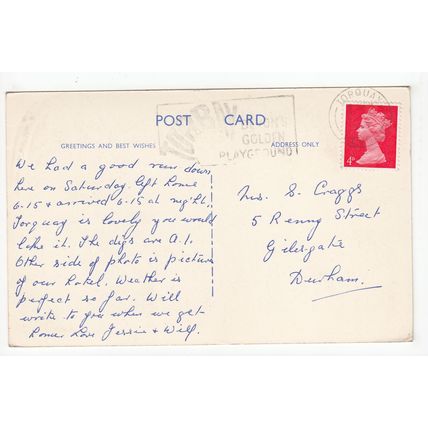 POST CARD
GREETINGS AND BEST WISHES
ADDRESS ONLY
TORBAY
DEVON'S
GOLDEN
PLAYGROUND
TORQUAY
4P
We had a good run down
here on Saturday. left home
6-15 & arrived 6.15 at night.
Torquay is lovely you would
like it. The digs are A.1.
Other side of photo is picture
of our hotel. Weather is
perfect so far. Will
write to you when we get
home Love Jessie & Wilf.
Mrs. S. Craggs
5 Renny Street
Gilesgate
Durham.